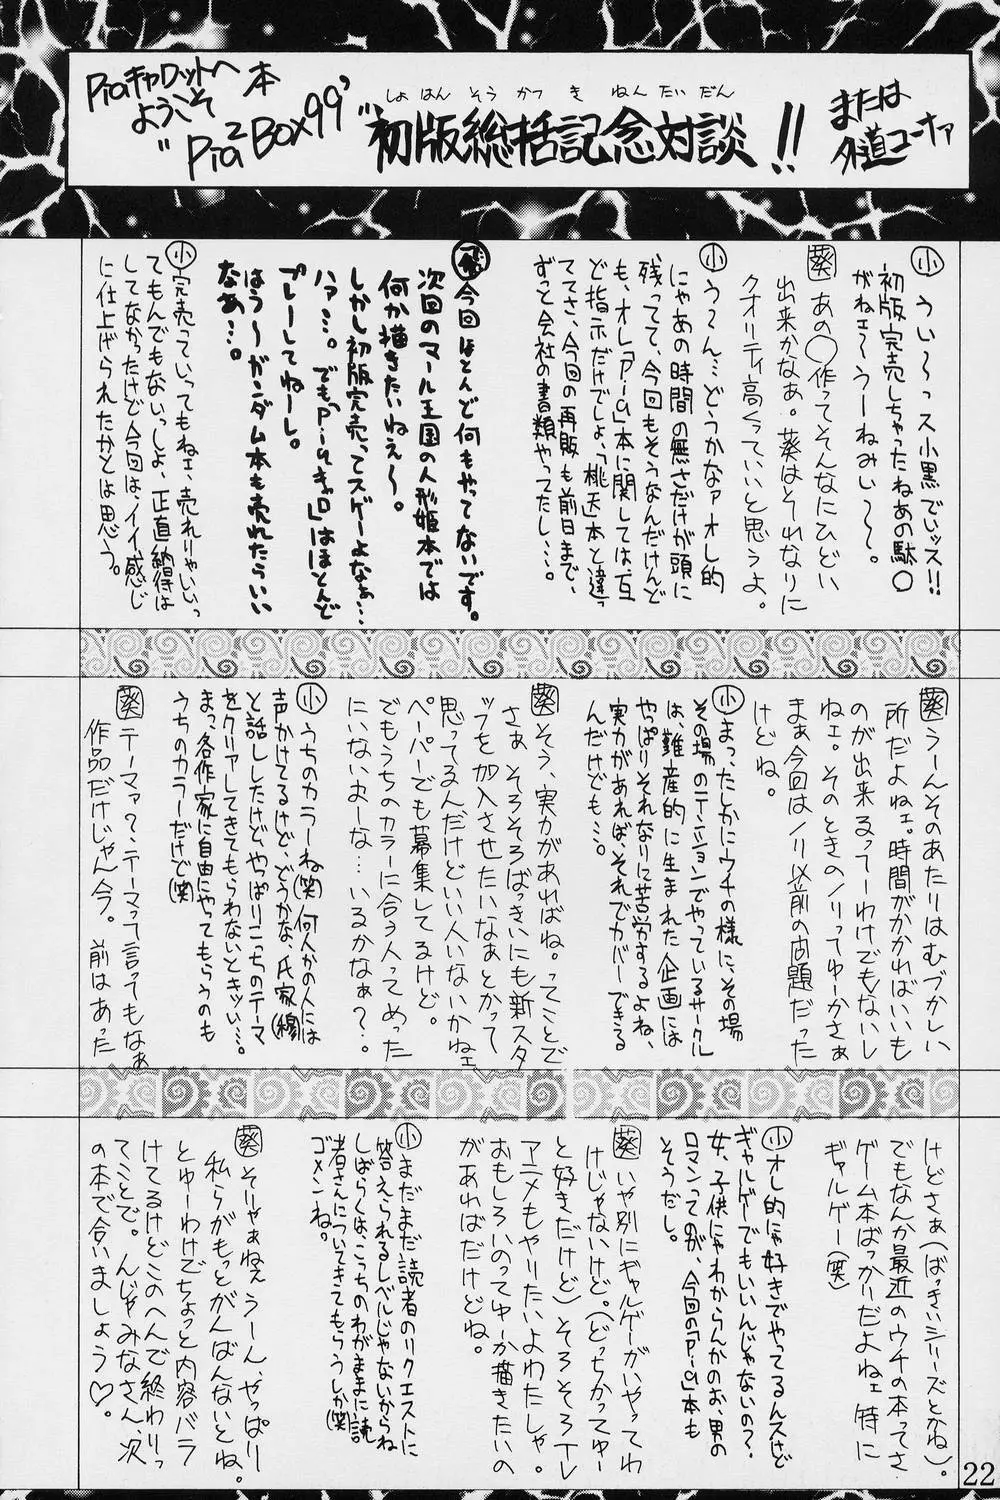 Piaキャロットへ
ようこそ
本
"Pia2Box99'"
しょはんそうかつきねんたいだん
初版総括記念対談!!
または
外道コーナァ
小 うい〜っス小黒でぃッス!!
初版完売しちゃったねあの駄〇
がねェ〜うーねみぃ〜〜。
葵 あの〇作ってそんなにひどい
出来かなぁ。葵はそれなりに
クオリティ高くっていいと思うよ。
小 う〜ん…どうかなァオレ的
にゃあの時間の無さだけが頭に
残ってて、今回もそうなんだけんど
も、オレ「Pia」本に関しては、互
ど指示だけでしょ、「桃天」本と違っ
ててさ、今回の再販も前日まで、
ずっと会社の書類やってたし…。
今回ほとんど何もやってないです。
次回のマール王国の人形姫本では
何か描きたいねえ〜。
しかし初版完売ってスゲーよなぁ…
ハァ…。でも「Piaキャロ」はほとんど
プレーしてねーし。
はう〜ガンダム本も売れたらいい
なぁ…。
小 完売っていってもねェ、売れりゃいいっ
てもんでもないっしょ、正直納得は
してなかったけど今回は、イイ感じ
に仕上げられたかとは思う。
葵 うーんそのあたりはむづかしい
所だよねェ。時間がかかればいいも
のが出来るってーわけでもないし
ねェ。そのときのノリってゆーかさぁ
まぁ今回はノリ以前の問題だった
けどね。
小 まったしかにウチの様に、その場
その場のテンションでやっているサークル
は、難産的に生まれた企画には
やっぱりそれなりに苦労するよね、
実力があれば、それでカバーできる
んだけども…。
葵 そう、実力があればね。ってことで
さぁ そろそろばっきいにも新スタ
ッフを加入させたいなぁとかって
思ってるんだけどいい人いないかねェ
ペーパーでも募集してるけど。
でもうちのカラーに合う人ってめった
にいないよーな…いるかなぁ?…。
小 うちのカラーね(笑)何人かの人には
声かけてるけど、どうかな、氏家(穆)
と話ししたけど、やっぱりこっちのテーマ
をクリアしてきてもらわないとキッい…。
まっ、各作家に自由にやってもらうのも
うちのカラーだけど(笑)
葵 テーマァ?、テーマって言ってもなぁ
作品だけじゃん今。 前はあった
けどさぁ(ばっきぃシリーズとかね)。
でもなんか最近のウチの本ってさ
ゲーム本ばっかりだよねェ 特に
ギャルゲー(笑)
小 オレ的にゃ好きでやってるんスけど
ギャルゲーでもいいんじゃないの?、
女、子供にゃわからんかのお、男の
ロマンってのが、今回の「Pia」本も
そうだし。
葵 いや別にギャルゲーがいやってわ
けじゃないけど。(どっちかってゆー
と好きだけど)そろそろTレ
アニメもやりたいよわたしゃ。
おもしろいのってゆーか描きたいの
があればだけどね。
小 まだまだ読者のリクエストに
答えられるレベルじゃないからね
しばらくは、こっちのわがままに読
者さんについてきてもらうしか(笑)
ゴメンね。
葵 そりゃぁねぇうーん、やっぱり
私らがもっとがんばんないとね。
とゆーわけでちょっと内容バラ
けてるけどこのへんで終わりっ
てことで。んじゃみなさん、次
の本で合いましょう♡。
22